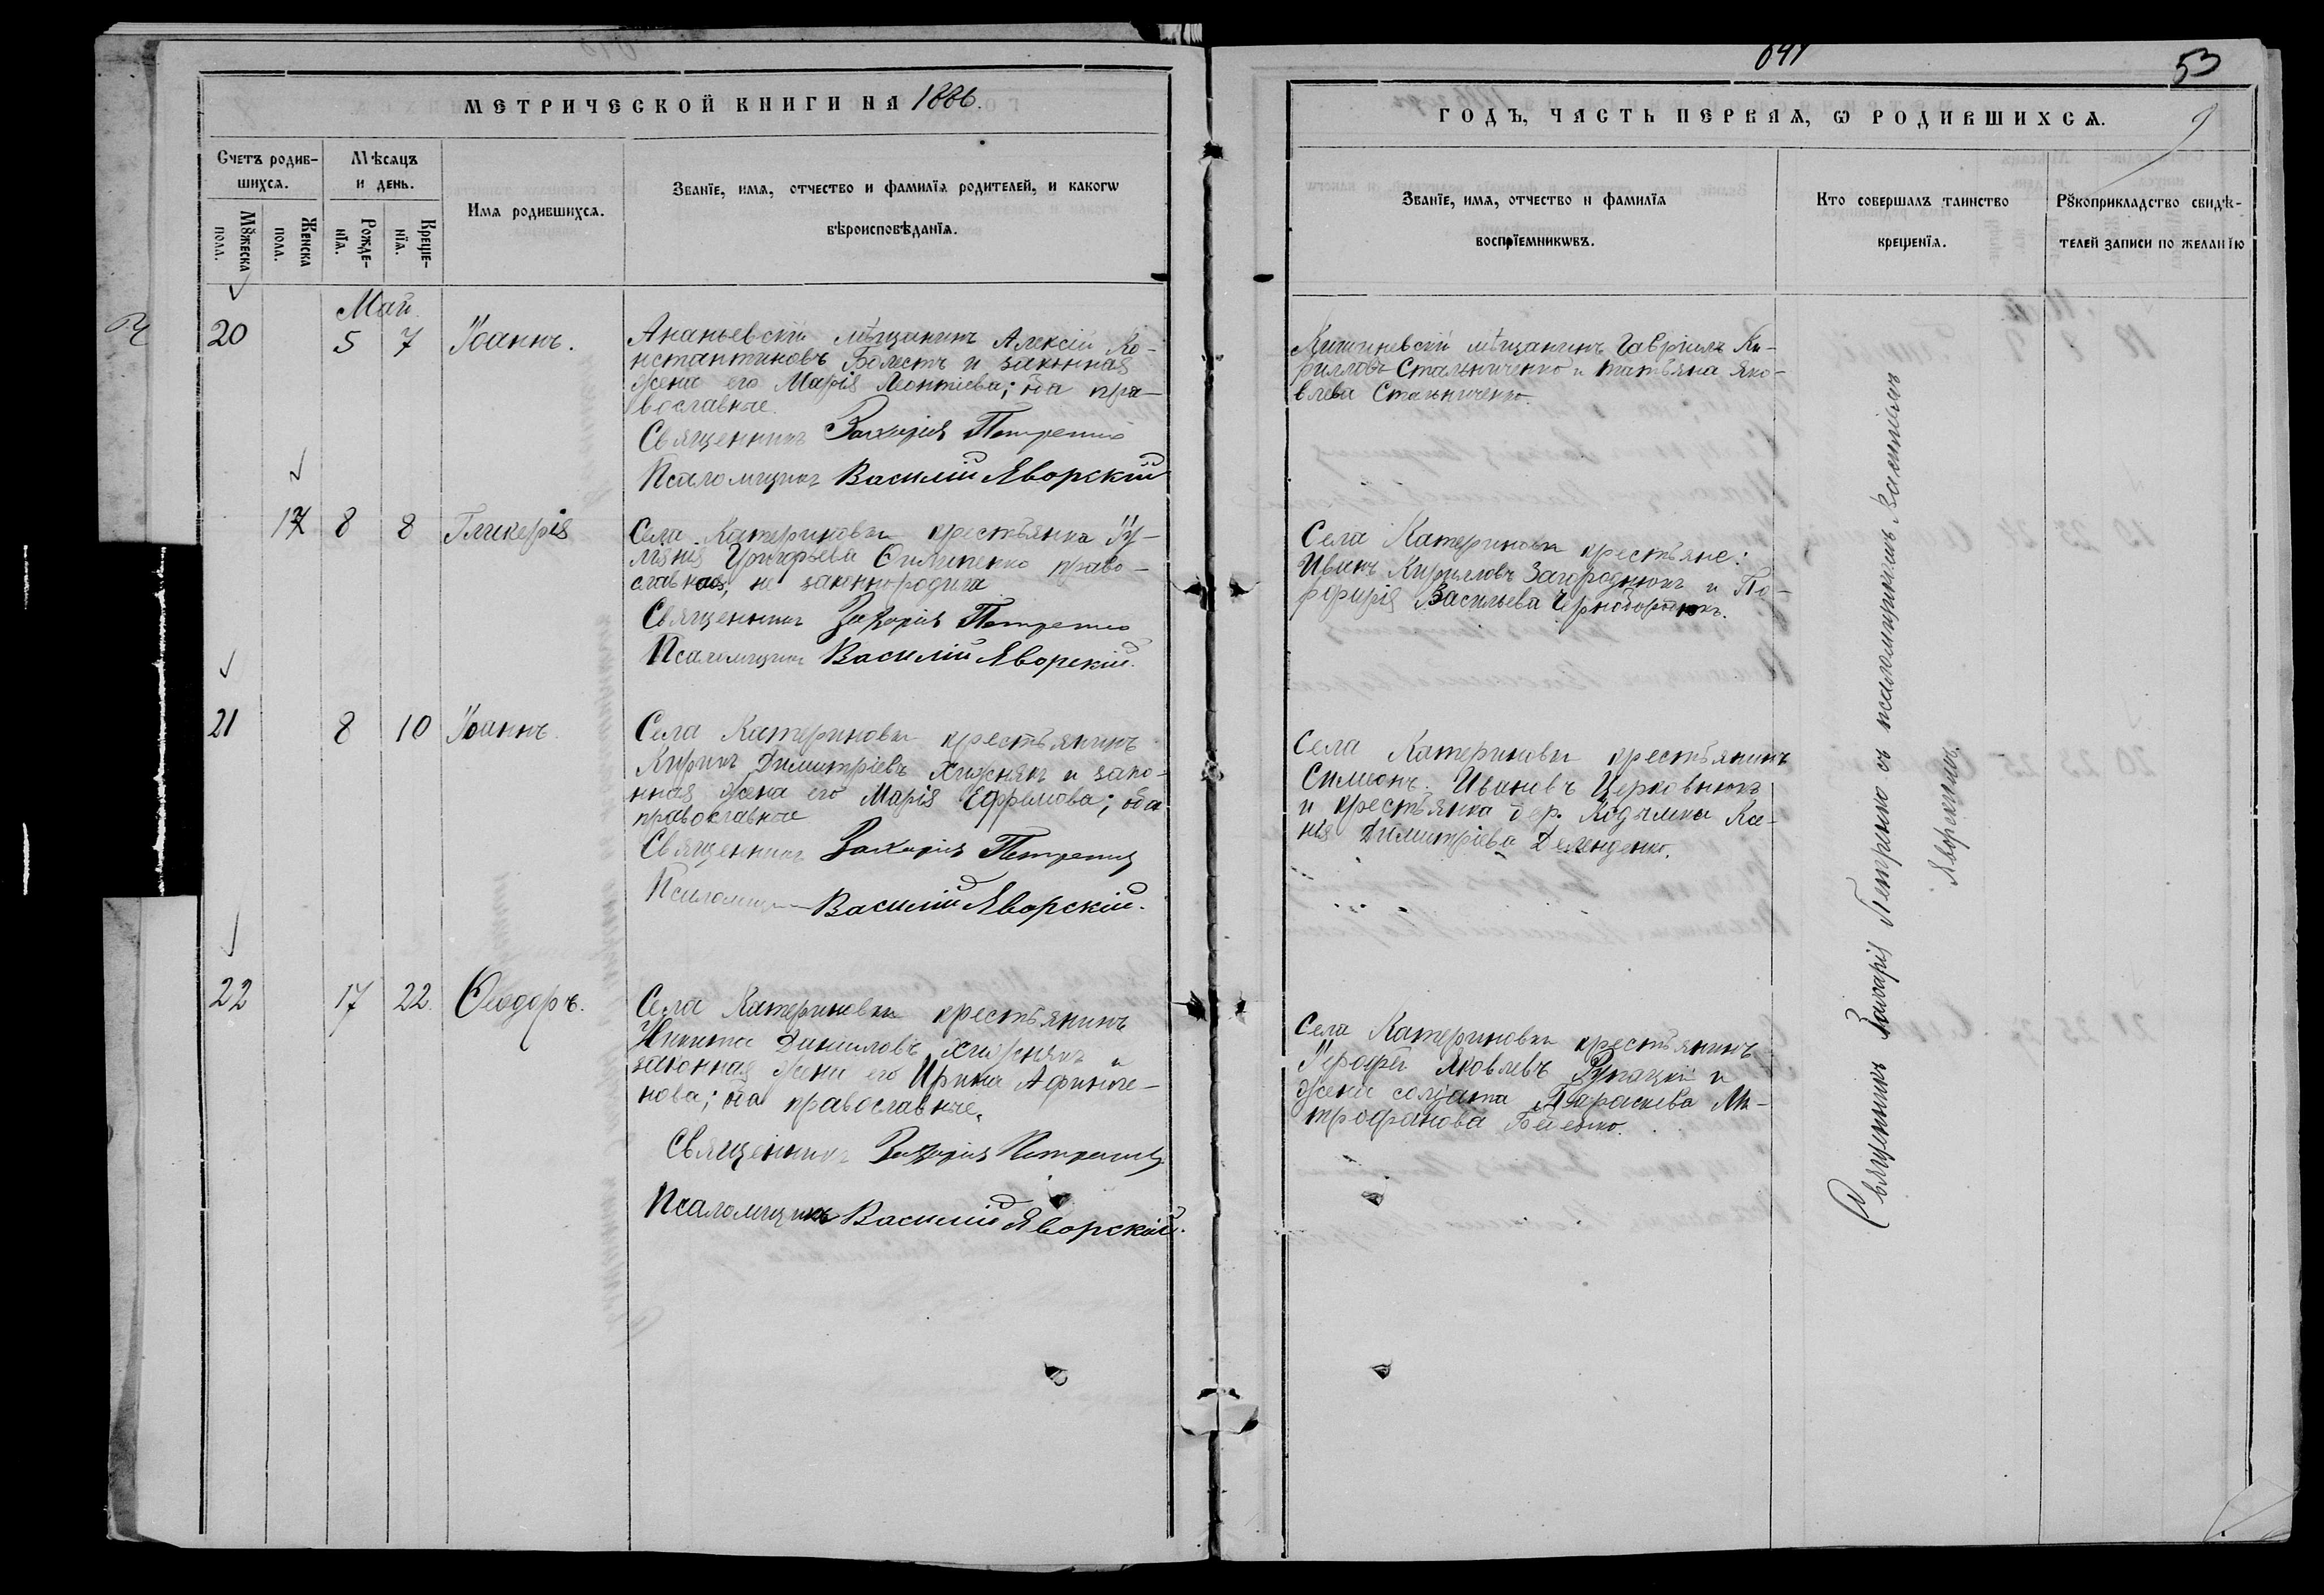 641
53
МЕТРИЧЕСКОЙ КНИГИ НА 1886.
ГОДЪ, ЧАСТЬ ПЕРВАѦ, Ѡ РОДИВШИХСѦ.
Счетъ родив-
шихсѧ.
Мꙋжеска
пола.
Женска
пола.
Мѣсѧцъ
и день.
Рожде-
нїѧ.
Креще-
нїѧ.
Имѧ родившихсѧ.
Званїе, имѧ, отчество и фамилїѧ родителей, и какогѡ
вѣроисповѣданїѧ.
Званїе, имѧ, отчество и фамилїѧ
воспрїемникѡвъ.
Кто совершалъ таинство
крещенїѧ.
Рꙋкоприкладство свидѣ-
телей записи по желанїю
Май
20 5 7 Іоаннъ.
Ананьевскій мѣщанинъ Алексій Ко-
нстантиновъ Болестъ и законная
жена его Марія Леонтіева; оба пра-
вославные.
Священникъ Захарія Петренко
Псаломщикъ Василій Яворскій
Кишиневскій мѣщанинъ Гавріилъ Ки-
рилловъ Стальниченко и Татьяна Яко-
влева Стальниченко.
17 8 8 Гликерія
Села Катериновки крестьянка Іу-
ліанія Григорьева Филипенко право-
славная, не законнородила
Священникъ Захарія Петренко
Псаломщикъ Василій Яворскій.
Села Катериновки крестьяне:
Иванъ Кирилловъ Загороднюкъ и По-
рфирія Васильева
21 8 10 Іоаннъ.
Села Катериновки крестьянинъ
Кирилъ Димитріевъ Хижнякъ и зако-
нная жена его Марія Ефремова; оба
православные
Священникъ Захарія Петренко
Псаломщикъ Василій Яворскій.
Села Катериновки крестьянинъ
Симеонъ Ивановъ Церковнюкъ
и крестьянка дер. Кодымки Ксе-
нія Димитріева
22 17 22. Ѳеодоръ.
Села Катериновки крестьянинъ
Никита Даниловъ Хижнякъ и
законная жена его Ирина Афиноге-
нова; оба православные.
Священникъ Захарія Петренко
Псаломщикъ Василій Яворскій.
Села Катериновки крестьянинъ
Іерофей Яковлевъ и
жена солдата Параскева Ми-
трофанова
Священникъ Захарія Петренко съ псаломщикомъ Василіемъ
Яворскимъ.